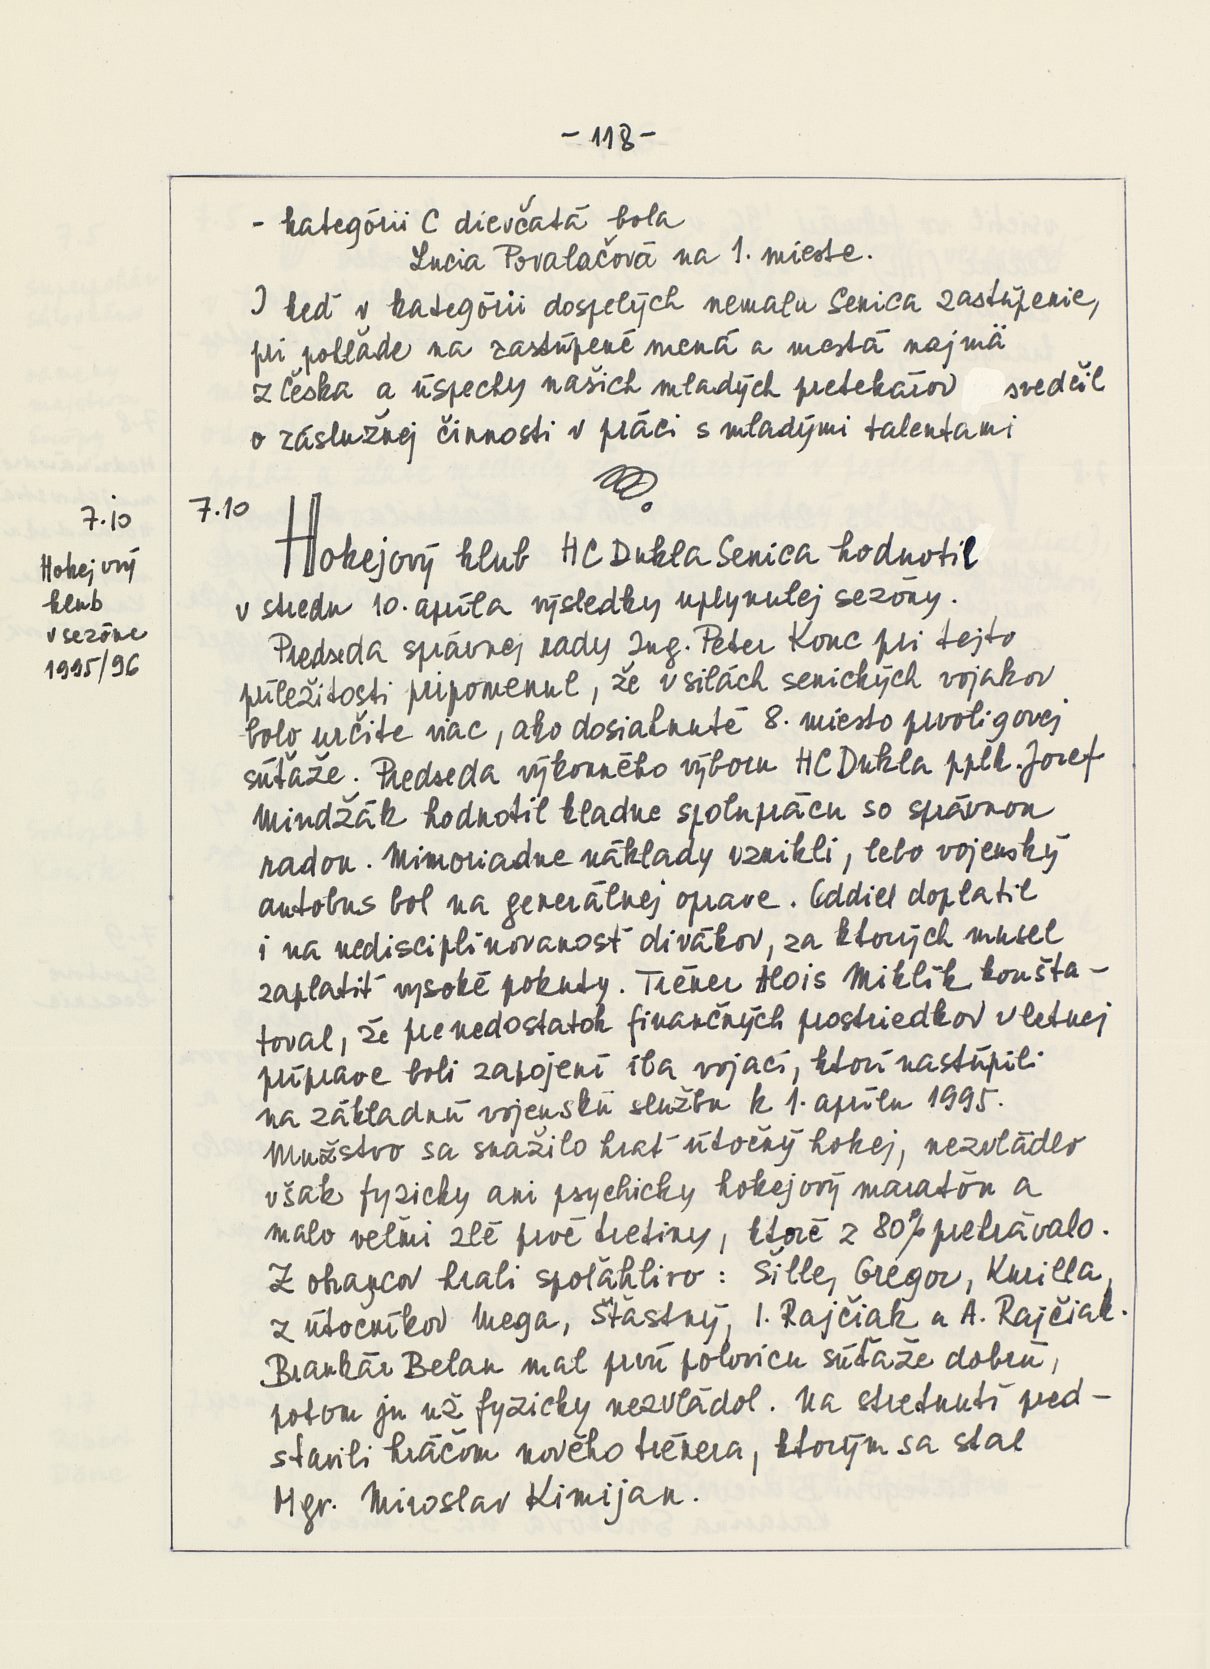 - 118 -
- kategórii C dievčatá bola
Lucia Povalačová na 1. mieste.
I keď v kategórii dospelých nemalu Senica zastúpenie,
pri pohľade na zastúpené mená a mestá najmä
z Česka a úspechy našich mladých pretekárov svedčil
o záslužnej činnosti v práci s mladými talentami
7.10
Hokejový
klub
v sezóne
1995/96
7.10
Hokejový klub HC Dukla Senica hodnotil
v stredu 10. apríla výsledky uplynulej sezóny.
Predseda správnej rady Ing. Peter Konc pri tejto
príležitosti pripomenul, že v silách senických vojakov
bolo určite viac, ako dosiahnuté 8. miesto prvoligovej
súťaže. Predseda výkonného výboru HC Dukla pplk. Jozef
Mindžák hodnotil kladne spoluprácu so správnou
radou. Mimoriadne náklady vznikli, lebo vojenský
autobus bol na generálnej oprave. Oddiel doplatil
i na nedisciplinovanosť divákov, za ktorých musel
zaplatiť vysoké pokuty. Tréner Alois Miklík konšta-
toval, že pre nedostatok finančných prostriedkov v letnej
príprave boli zapojení iba vojaci, ktorí nastúpili
na základnú vojenskú službu k 1. aprílu 1995.
Mužstvo sa snažilo hrať útočný hokej, nezvládlo
však fyzicky ani psychicky hokejový maratón a
malo veľmi zlé prvé tretiny, ktoré z 80% prehrávalo.
Z obrancov hrali spoľahlivo: Šille, Gregor, Kurilla,
z útočníkov Mega, Šťastný, I. Rajčiak a A. Rajčiak.
Brankár Belan mal prvú polovicu súťaže dobrú,
potom ju už fyzicky nezvládol. Na stretnutí pred-
stavili hráčom nového trénera, ktorým sa stal
Mgr. Miroslav Kimijan.